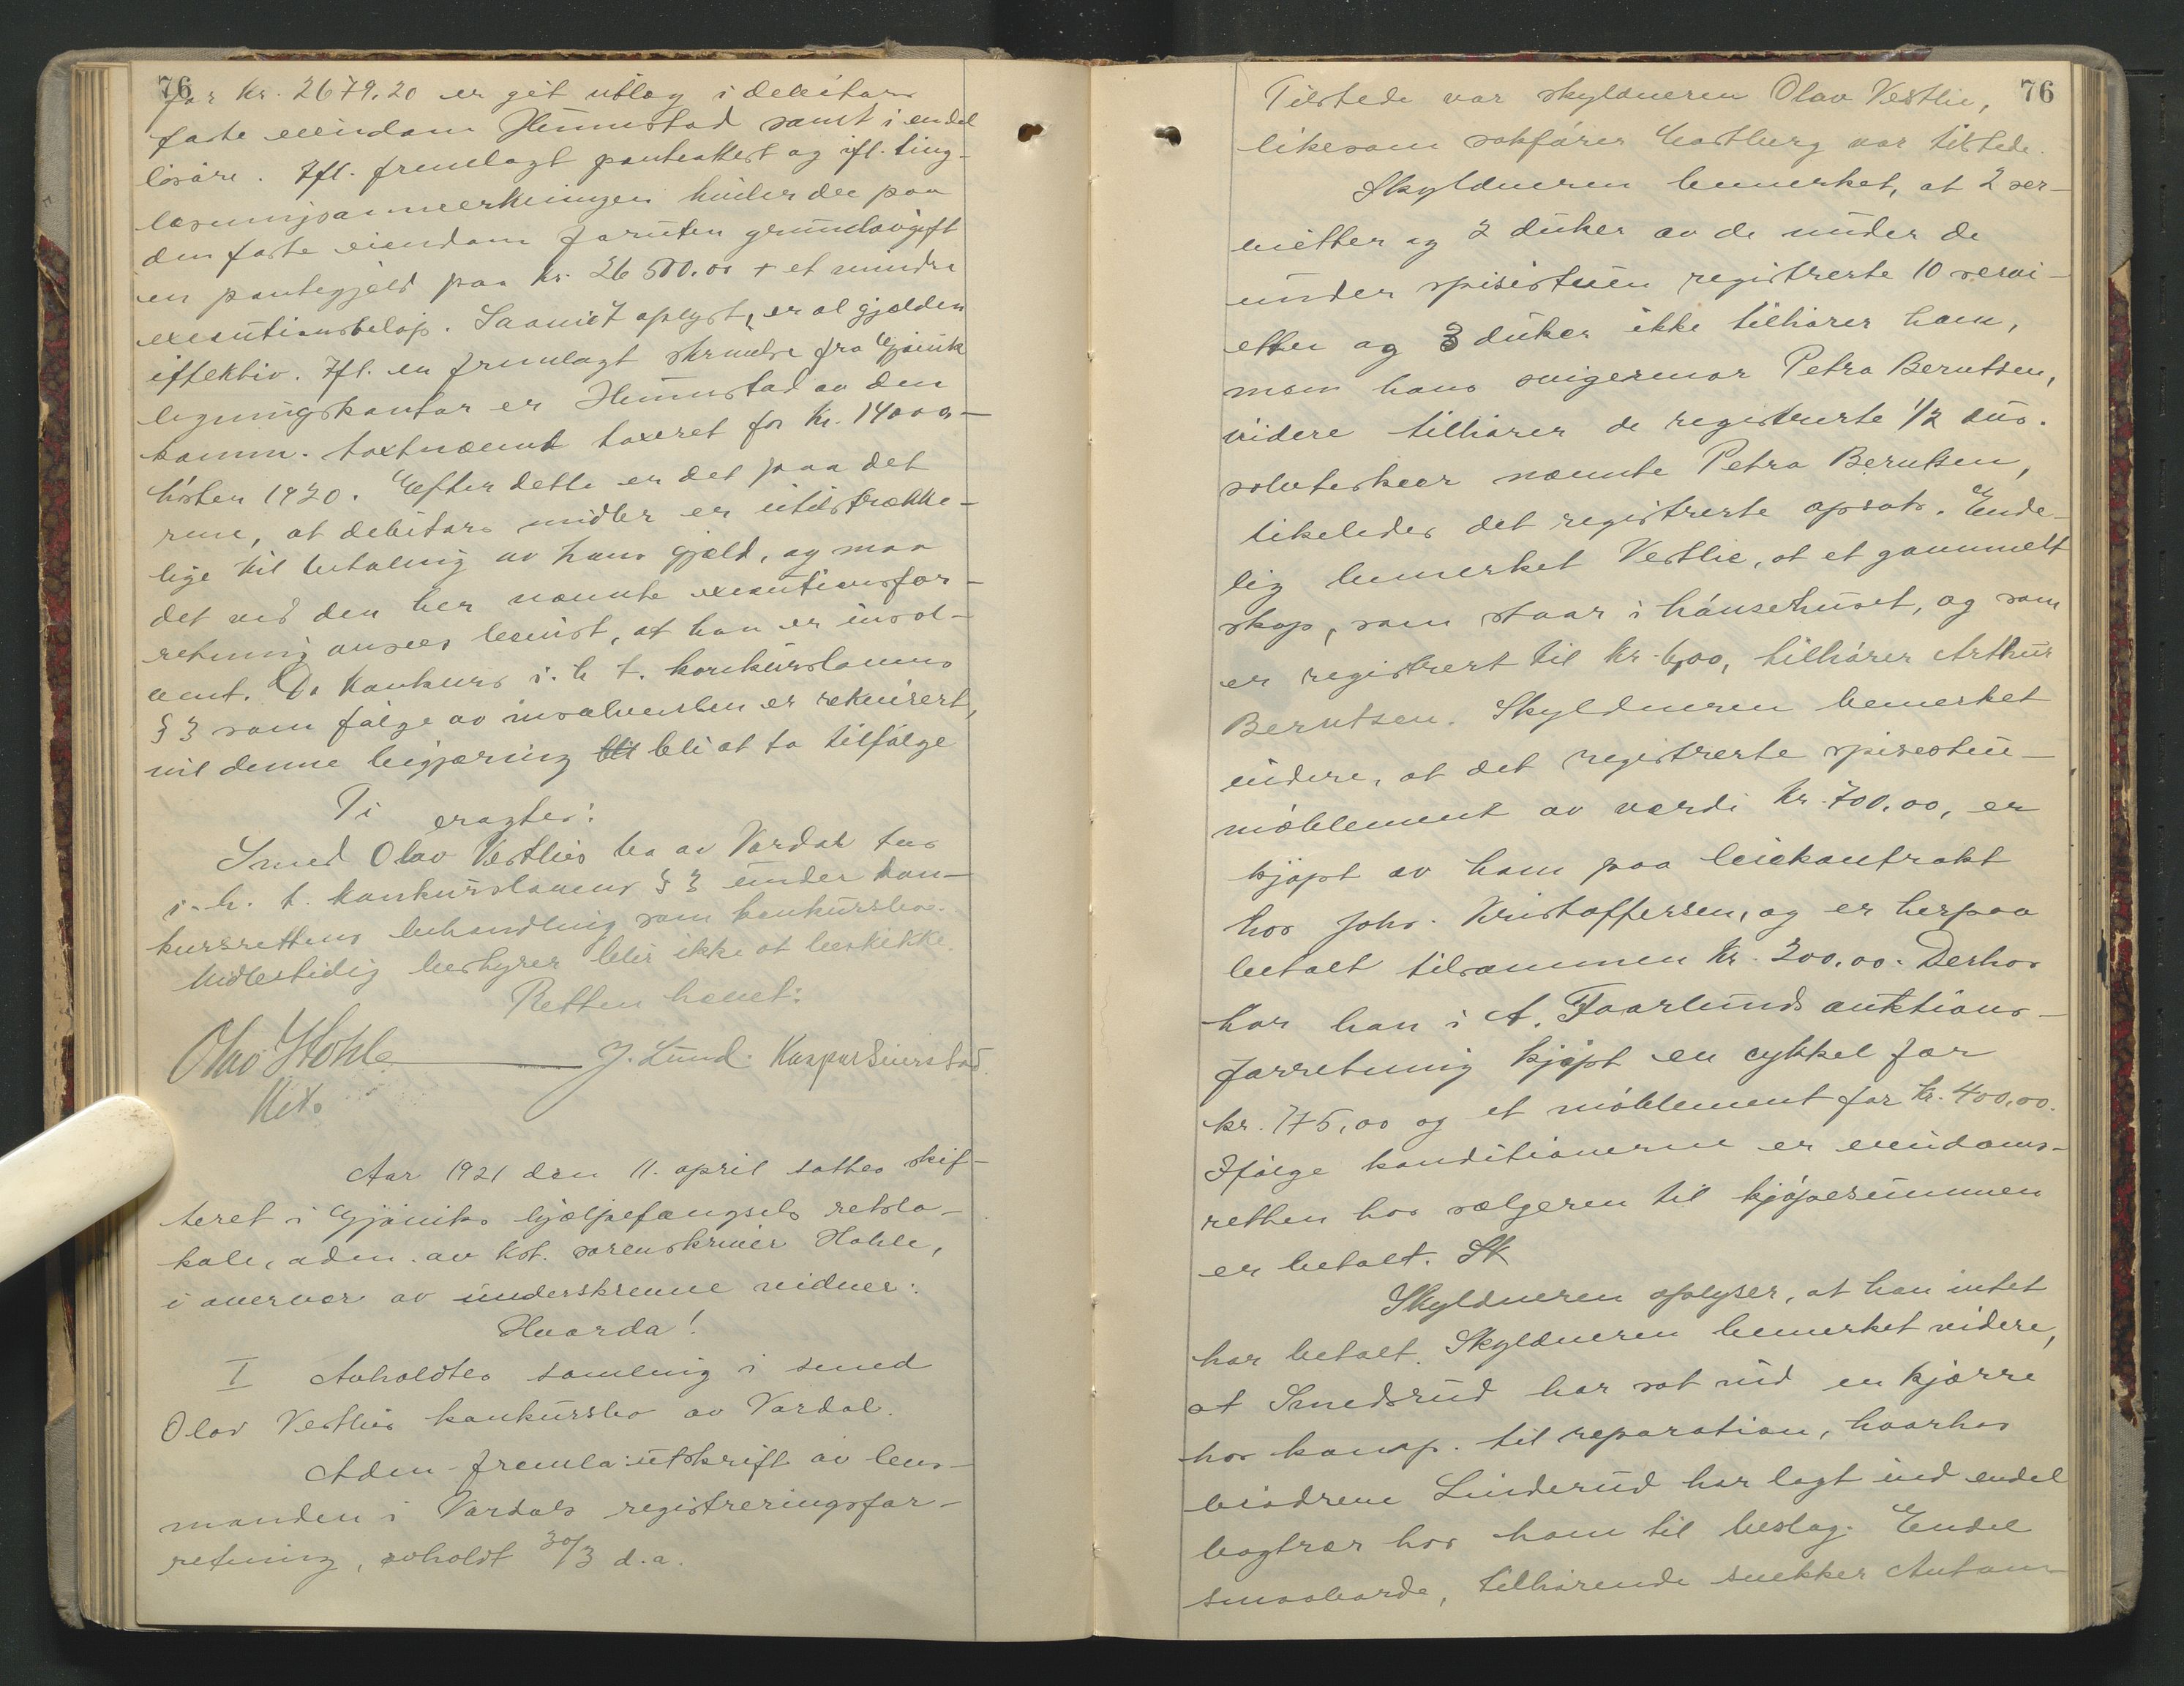 76
for kr. 2679.20 er git utlæg i debitors
faste eiendom Hunnstad samt i endel
løsøre. Ifl. fremlagt panteattest og ifl. ting-
læsningsanmerkningen hviler der paa
den faste eiendom foruten grundavgift
en pantegjæld paa kr. 26500.00 + et mindre
executionsbeløp. Saavidt oplyst, er al gjælden
effektiv. Ifl. en fremlagt skrivelse fra Gjøvik
ligningskontor er Hunnstad av den
komm. takstnævnd taxeret for kr. 14000 -
høsten 1920. Efter dette er det paa det
rene, at debitors midler er utilstrække-
lige til betaling av hans gjæld, og maa
det ved den her nævnte executionsfor-
retning ansees bevist, at han er insol-
vent. Da konkurs i. h. t. konkurslovens
§ 3 som følge av insolvensen er rekvirert,
vil denne begjæring bli at ta tilfølge
Ti eragtes:
Smed Olav Vestlies bo av Vardal tas
i. h. t. konkurslovens § 3 under kon-
kursrettens behandling som konkursbo.
Midlertidig bestyrer blir ikke at beskikke.
Retten hævet:
Olav Hohle J. Lund. Kaspar Sivesstad.
Kst.
Aar 1921 den 11. april sattes skif-
teret i Gjøviks hjælpefængsels retslo-
kale, adm. av kst. sorenskriver Hohle,
i overvær av underskrevne vidner:
Hvorda!
I Avholdtes samling i smed
Olav Vestlies konkursbo av Vardal.
Adm. fremla: utskrift av lens-
manden i Vardals registreringsfor-
retning, avholdt 30/3 d. a.
76
Tilstede var skyldneren Olav Vestlie,
likesom sakfører Castberg var tilstede.
Skyldneren bemerket, at 2 ser-
vietter og 2 duker av de under de
under spisestuen registrerte 10 servi-
etter og 3 duker ikke tilhører ham,
men hans svigermor Petra Berntsen,
videre tilhører de registrerte 1/2 dus.
sølvteskeer nævnte Petra Berntsen,
likeledes det registrerte opsats. Ende-
lig bemerket Vestlie, at et gammelt
skap, som staar i hønsehuset, og som
er registrert til kr. 6,00, tilhører Arthur
Berntsen. Skyldneren bemerket
videre, at det registrerte spisestue-
møblement av værdi kr. 700,00, er
kjøpt av ham paa leiekontrakt
hos Johs. Kristoffersen, og er herpaa
betalt tilsammen kr. 200,00. Derhos
har han i A. Faarlunds auktions-
forretning kjøpt en cykkel for
kr. 175,00 og et møblement for kr. 400,00.
Ifølge konditionerne er eiendoms-
retten hos sælgeren til kjøpesummen
er betalt. Sk
Skyldneren oplyser, at han intet
har betalt. Skyldneren bemerket videre,
at Smedsrud har sat ind en kjærre
hos komp. til reparation, hvorhos
brødrene Linderud har lagt ind endel
vogtrær hos ham til beslag. Endel
smaaborde, tilhørende snekker Anton